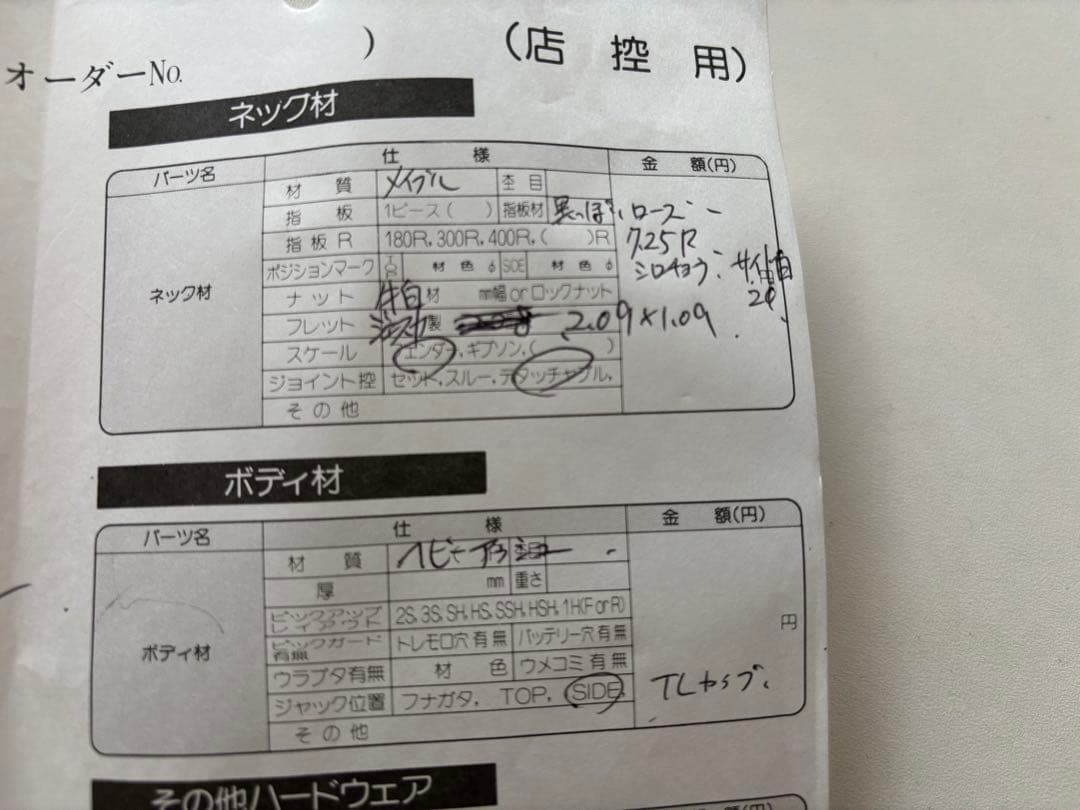 オーダーNo. ) (店 控 用)
ネック材
パーツ名 仕 様 金 額(円)
ネック材
材 質 メイプル 杢 目
指 板 1ピース( ) 指板材 黒っぽい ローズ
指板R 180R, 300R, 400R, ( )R 7.25R
ポジションマーク TOP 材 色 φ SIDE 材 色 φ シロチョウ:
ナット 牛白 材 mm幅 or ロックナット
フレット 製 2.09×1.09
スケール フェンダー, ギブソン, ( )
ジョイント控 セット, スルー, デタッチャブル,
その他
ボディ材
パーツ名 仕 様 金 額(円)
ボディ材
材 質 ヘビーアッシュ
厚 mm 重さ
ピックアップレイアウト 2S, 3S, SH, HS, SSH, HSH, 1H(F or R)
円
ピックガード有無 トレモロ穴 有 無 バッテリー穴 有 無
ウラブタ有無 材 色 ウメコミ 有 無
ジャック位置 フナガタ, TOP, SIDE, TLカップ
その他
その他ハードウェア
金 額(円)